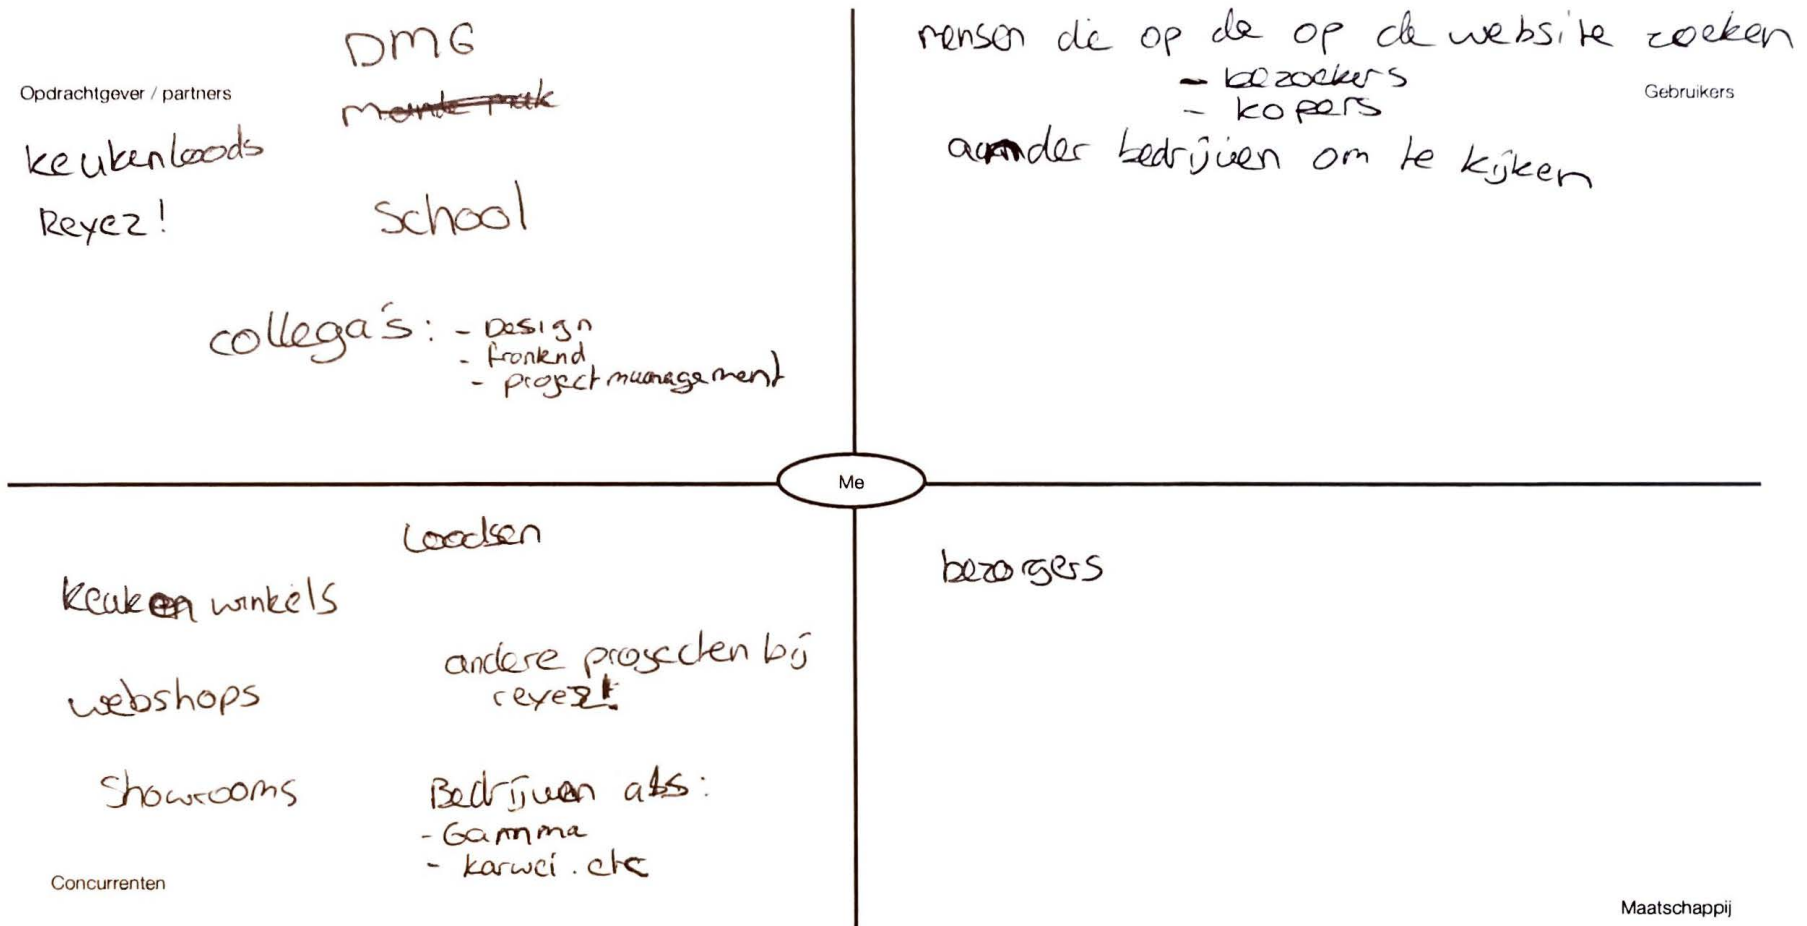 DMG
Opdrachtgever / partners
keukenloods
Reyez!
School
collega's: - Design
- frontend
- projectmanagement
mensen die op de op de website zoeken
- bezoekers
- kopers
Gebruikers
ander bedrijven om te kijken
Me
Loodsen
keuken winkels
andere projecten bij
reyez!
webshops
Showrooms
Bedrijven als:
- Gamma
- karwei. etc
Concurrenten
bezorgers
Maatschappij